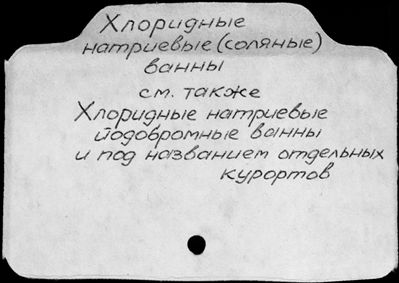 Хлоридные
натриевые (соляные)
ванны
см. также
Хлоридные натриевые
йодобромные ванны
и под названием отдельных
курортов